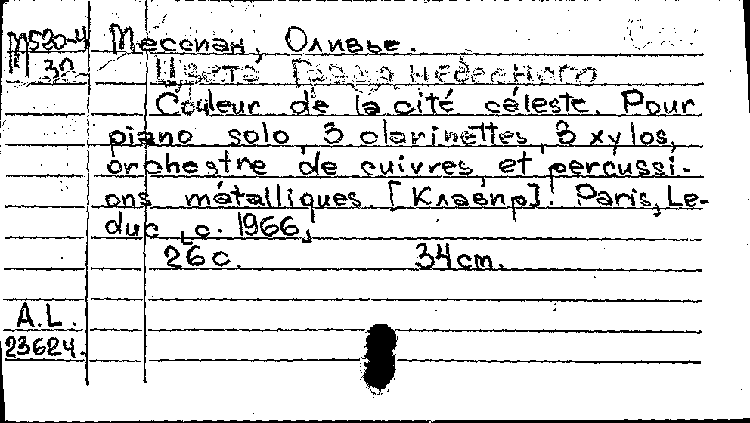 М520-4 Мессиан, Оливье.
30 Цвета Града небесного
Couleur de la cité céleste. Pour
piano solo, 3 clarinettes, 3 xylos,
orchestre de cuivres, et percussi-
ons métalliques. [Клавир]. Paris, Le-
duc, [c. 1966]
26 с. 34 cm.
A.L.
23624.